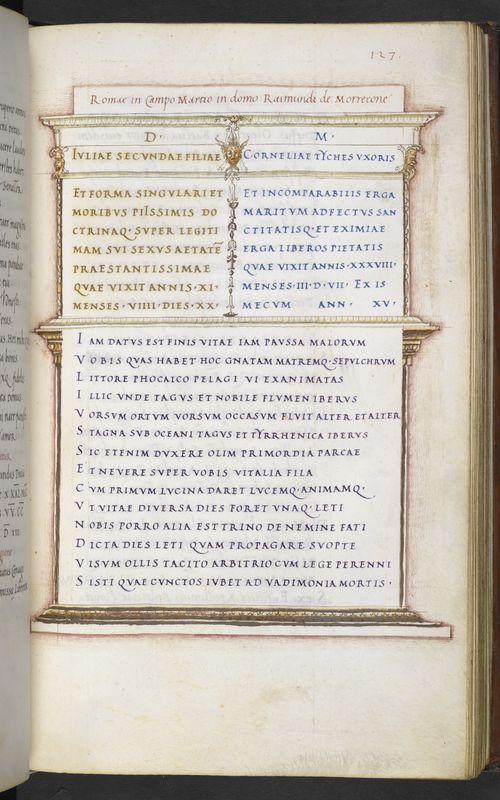 127.
Romae in Campo Martio in domo Raimundi de Morrecone
D · M ·
IVLIAE SECVNDAE FILIAE
ET FORMA SINGVLARI ET
MORIBVS PIISSIMIS DO
CTRINAQ · SVPER LEGITI
MAM SVI SEXVS AETATẼ
PRAESTANTISSIMAE
QVAE VIXIT ANNIS · XI ·
MENSES · VIIII · DIES · XX ·
CORNELIAE TYCHES VXORIS
ET INCOMPARABILIS ERGA
MARITVM ADFECTVS SAN
CTITATISQ · ET EXIMIAE
ERGA LIBEROS PIETATIS
QVAE VIXIT ANNIS · XXXVIII ·
MENSES · III · D · VII · EX IS
MECVM ANN · XV ·
IAM DATVS EST FINIS VITAE IAM PAVSSA MALORVM
VOBIS QVAS HABET HOC GNATAM MATREMQ · SEPVLCHRVM
LITTORE PHOCAICO PELAGI VI EXANIMATAS
ILLIC VNDE TAGVS ET NOBILE FLVMEN IBERVS
VORSVM ORTVM VORSVM OCCASVM FLVIT ALTER ET ALTER
STAGNA SVB OCEANI TAGVS ET TYRRHENICA IBERVS
SIC ETENIM DVXERE OLIM PRIMORDIA PARCAE
ET NEVERE SVPER VOBIS VITALIA FILA
CVM PRIMVM LVCINA DARET LVCEMQ · ANIMAMQ ·
VT VITAE DIVERSA DIES FORET VNAQ · LETI
NOBIS PORRO ALIA EST TRINO DE NEMINE FATI
DICTA DIES LETI QVAM PROPAGARE SVOPTE
VISVM OLLIS TACITO ARBITRIO CVM LEGE PERENNI
SISTI QVAE CVNCTOS IVBET AD VADIMONIA MORTIS ·